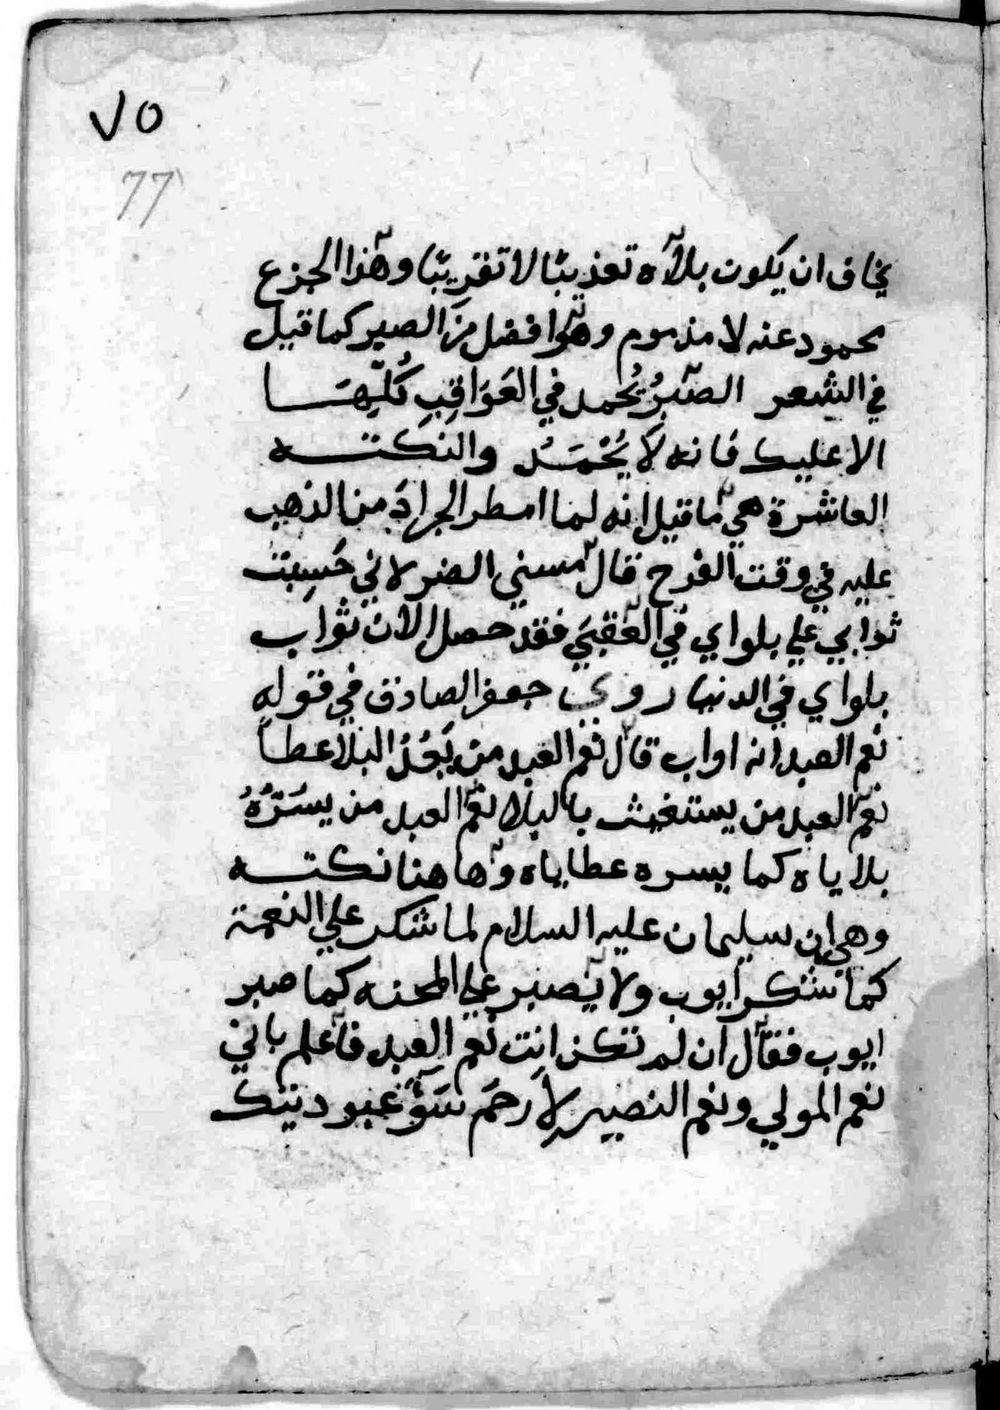 ٧٥
77
يخاف ان يكون بلاؤه تعذيبا لا تقريبا وهذا الجزع
محمود عنه لا مذموم وهو افضل مِنَ الصبر كما قيل
في الشعر الصَبرُ يُحمد في العَوَاقِبِ كُلِّهَا
الا عليك فانه لَا يُحْمَدُ والنكتـــه
العاشرة هي ما قيل انه لما امطر الجرادُ من الذهب
عليه في وقت الفرح قال مسني الضر لاني حَسِبتُ
ثوابي علي بلواي في العُقبَي فقد حصل الان ثواب
بلواي في الدنيا روي جعفر الصادق في قوله
نعم العبد انه اواب قال نعم العبد من يَعُدُّ البلا عطاً
نعم العبد من يستغيث بالبلا نعم العبد من يسَرّهُ
بلاياه كما يسره عطاياه وها هنا نكتـــه
وهي ان سليمان عليه السلام لما شكر علي النعمة
كما شكر ايوب ولا يصبر علي المحنه كما صبر
ايوب فقال ان لم تكن انت نعم العبد فاعلم باني
نعم المولي ونعم النصير لِأَرحَم سَوُ عبوديتك